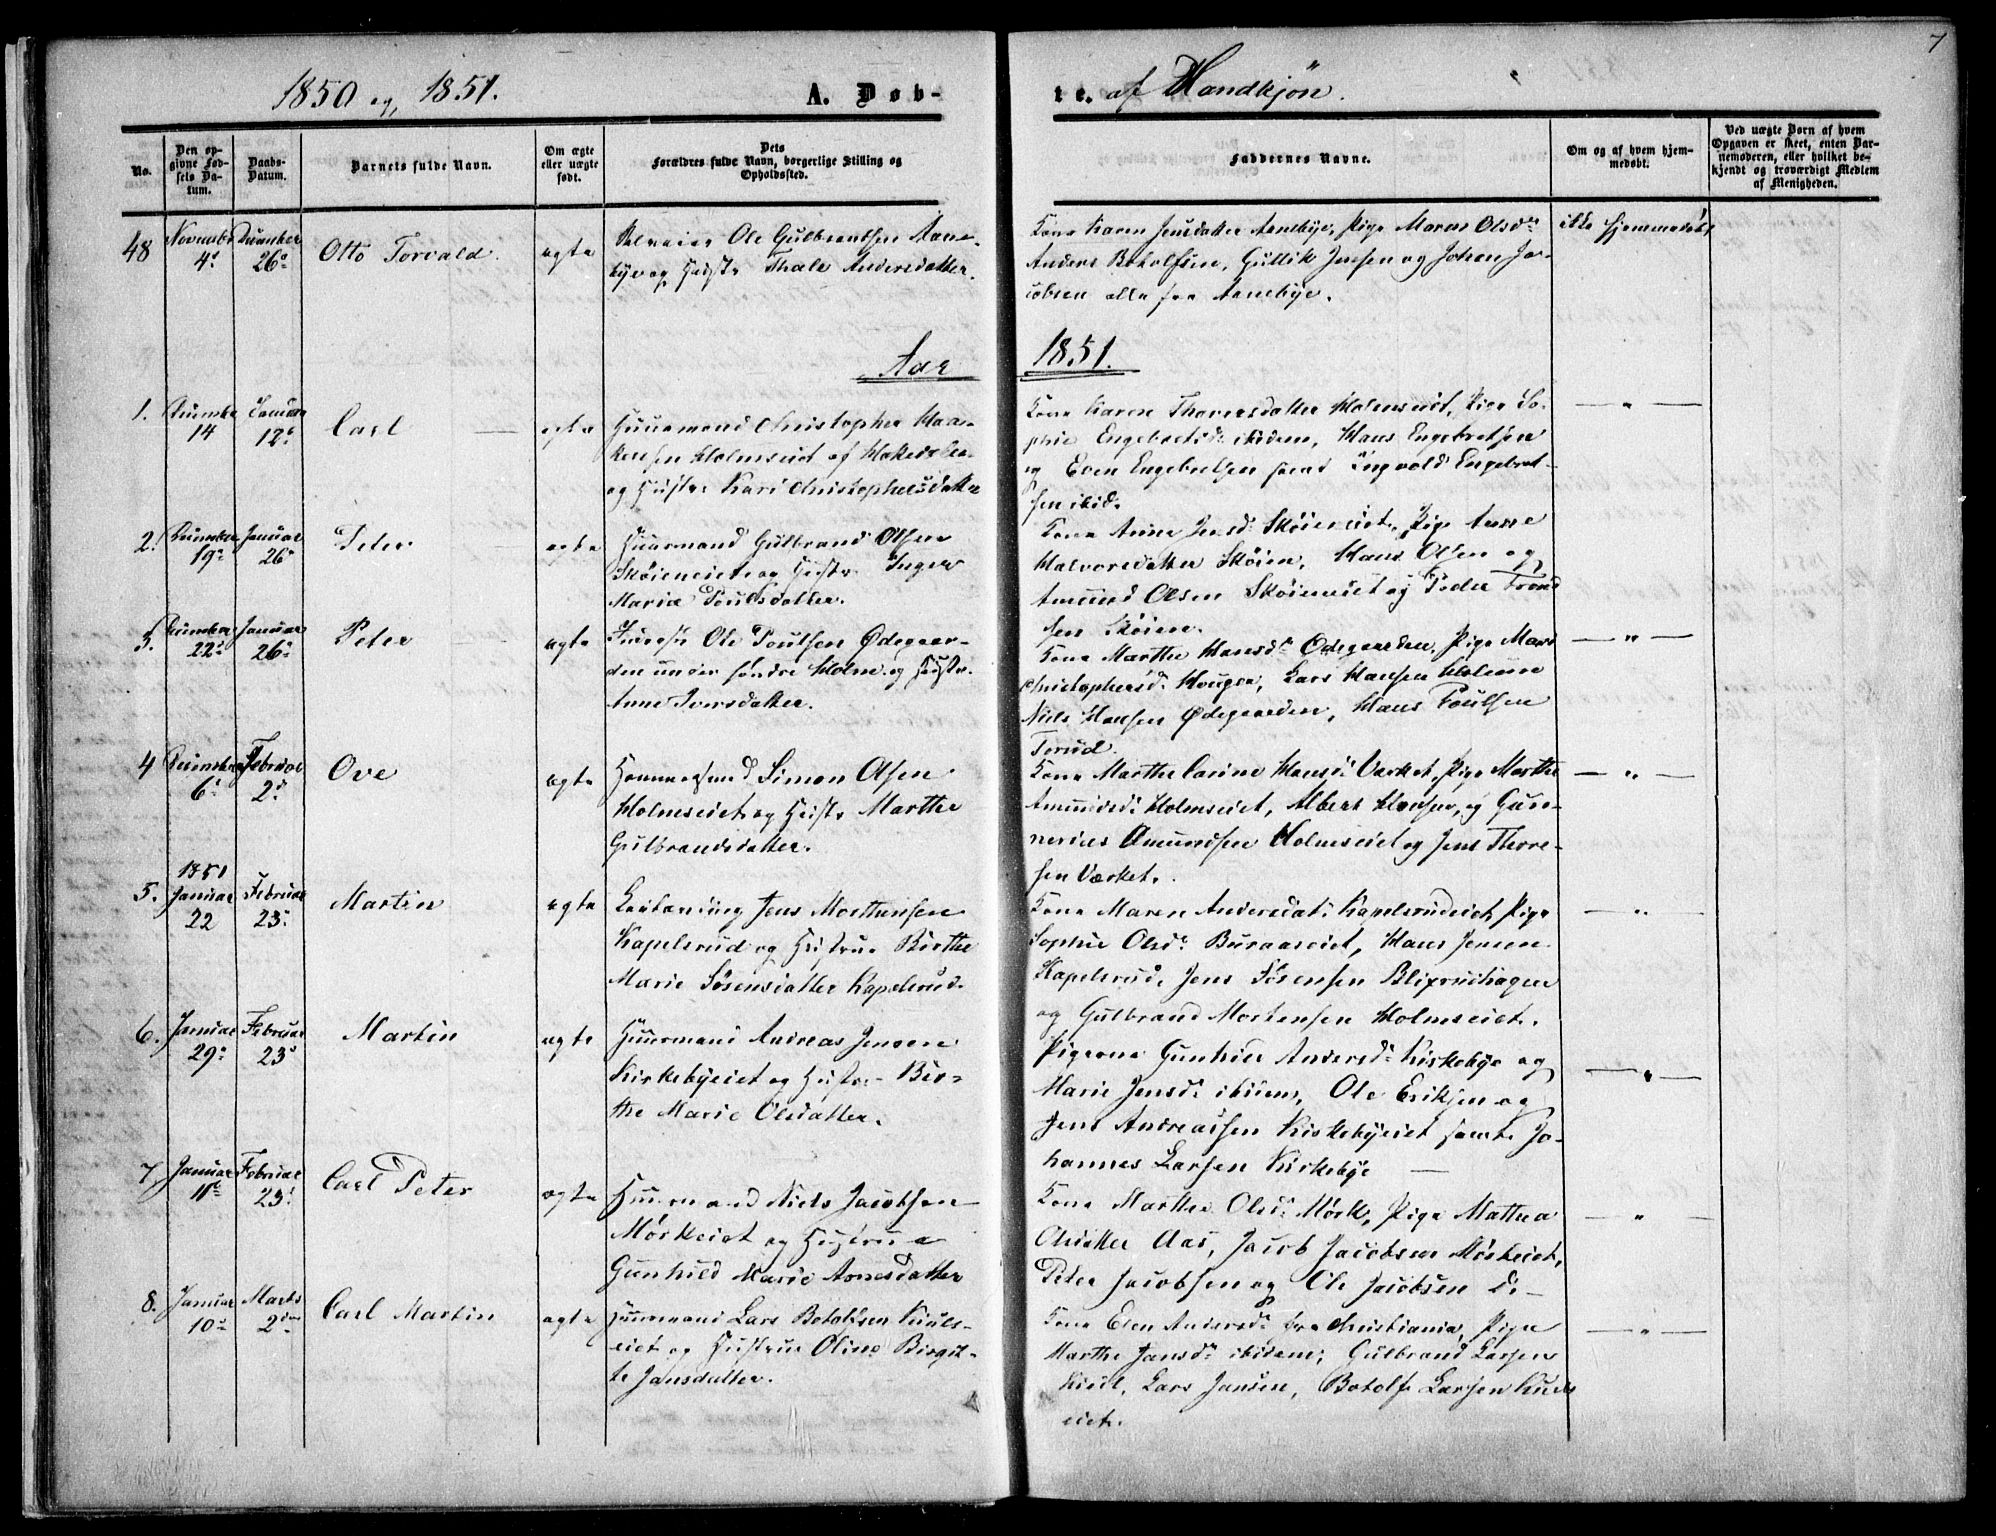 7
1850 og 1851. A. Døb-
te. af Mandkjøn.
No.
Den op-
givne Fød-
sels Da-
tum.
Daabs-
Datum.
Barnets fulde Navn.
Om ægte
eller uægte
født.
Dets
Forældres fulde Navn, borgerlige Stilling og
Opholdssted.
Faddernes Navne.
Om og af hvem hjem-
medøbt.
Ved uægte Børn af hvem
Opgaven er skeet, enten Bar-
nemoderen, eller hvilket be-
kjendt og troværdigt Medlem
af Menigheden.
48
November
4de
December
26de
Otto Torvald.
ægte
Selveier Ole Gulbrandsen Aane-
bye og Hustr Thale Andersdatter.
Kone Karen Jensdatter Aanebye, Pige Maren Olsdr
Anders Botolfsen, Gullik Jensen og Johan Ja-
cobsen alle fra Aanebye.
ikke hjemmedøbt
Aar
1851.
1.
December
14
Januar
12te
Carl
ægte
Huusmand Christopher Haa-
kensen Holmseiet af
og Hustr. Kari Christophersdatter
Kone Karen Thoversdatter Holmseiet, Pige So-
phie Engebretsdr ibidem, Hans Engebretsen
og Even Engebretsen samt Ingvold Engebret-
sen ibid.
— " —
2.
December
19de
Januar
26de
Peter
ægte
Huusmand Gulbrand Olsen
Skøieneiet og Hustr Inger
Maria Poulsdatter.
Kone Anne Jensdr Skøieneiet, Pige Anne
Halvorsdatter Skøien, Hans Olsen og
Amund Olsen Skøieneiet og Peder Trond
sen Skøien.
3.
December
22de
Januar
26de
Peter
ægte
Ole Poulsen Ødegaar-
den under søndre Holm og Hustr.
Anne Iversdatter.
Kone Marthe Hansdr Ødegaarden, Pige Mari
Christophersdr Hougen, Lars Hansen Holm
Niels Hansen Ødegaarden, Hans Poulsen
Torud.
— " —
4
December
6te
Februar
2den
Ove
ægte
Simon Olsen
Holmseiet og Hustr Marthe
Gulbrandsdatter.
Kone Marthe Carine Hansdr Værket, Pige Marthe
Amundsdr Holmseiet, Albert Hansen, og Gun-
nerius Amundsen Holmseiet og Jens Thore-
sen Værket.
— " —
5.
1851
Januar
22
Februar
23de
Martin
ægte
Jens Morthensen
Kapelsrud og Hustrue Birthe
Marie Sørensdatter Kapelsrud.
Kone Maren Andersdatr Kapelsrudeiet, Pige
Sophie Olsdr Buraaseiet, Hans Jensen
Kapelsrud, Jens Sørensen Blixrudhagen
og Gulbrand Mortensen Holmseiet.
— " —
6.
Januar
29de
Februar
23de
Martin
ægte
Huusmand Andreas Jensen
Kirkebyeiet og Hustrue Bir-
the Marie Olsdatter.
Pigerne Gunhild Andersdr Kirkebye og
Marie Jensdr ibidem, Ole Eriksen og
Jens Andreassen Kirkebyeiet samt Jo-
hannes Larsen Kirkebye —
— " —
7.
Januar
11te
Februar
23de
Carl Peter
ægte
Huusmand Niels Jacobsen
Mørkeiet og Hustrue
Gunhild Marie Arnesdatter
Kone Marthe Olsdr Mørk, Pige Mathea
Olsdatter Aas, Jacob Jacobsen Mørkeiet,
Peter Jacobsen og Ole Jacobsen do —
— " —
8.
Januar
10de
Marts
2den
Carl Martin
ægte
Huusmand Lars Botolfsen Kruuls-
eiet og Hustrue Oline Birgit-
te Jansdatter.
Kone Elen Andersdr fra Christiania, Pige
Marthe Jansdr ibidem, Gulbrand Larsen
Lars Jansen, Botolf Larsen
eiet.
— " —